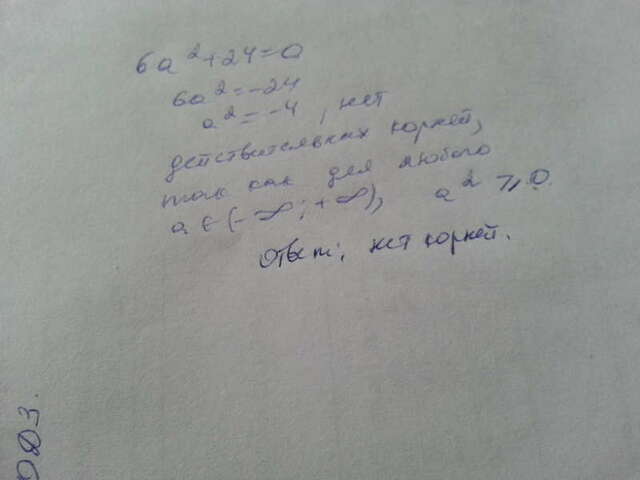 6a²+24=0
6a²=-24
a²=-4, нет
действительных корней,
так как для любого
a ∈ (-∞; +∞), a² ⩾ 0.
Ответ: нет корней.